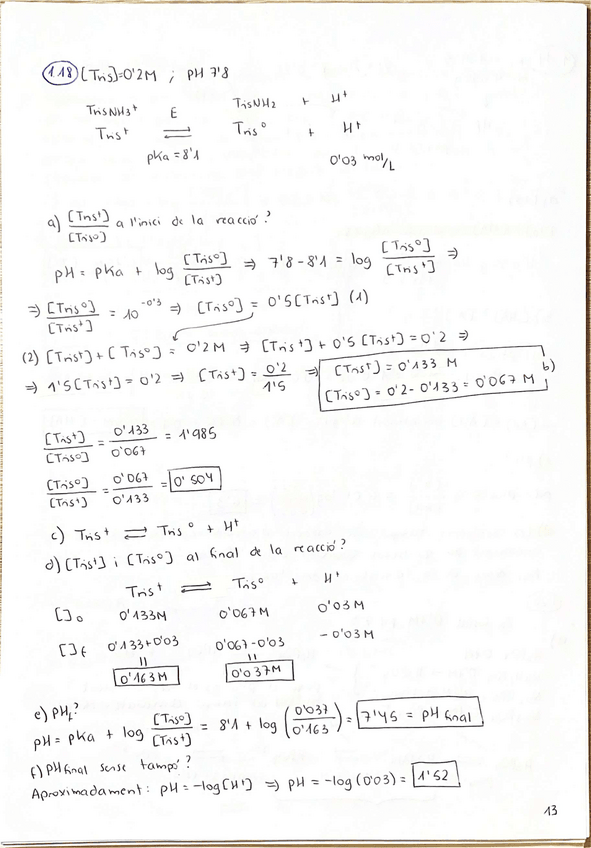 1.18 [Tris]=0'2M ; pH 7'8
TrisNH3+ E TrisNH2 + H+
Tris+ ⇌ Tris° + H+
pKa = 8'1 0'03 mol/L
a) [Tris+]/[Tris°] a l'inici de la reacció?
pH = pKa + log [Tris°]/[Tris+] ⇒ 7'8 - 8'1 = log [Tris°]/[Tris+] ⇒
⇒ [Tris°]/[Tris+] = 10^-0'3 ⇒ [Tris°] = 0'5[Tris+] (1)
(2) [Tris+] + [Tris°] = 0'2M ⇒ [Tris+] + 0'5 [Tris+] = 0'2 ⇒
⇒ 1'5[Tris+] = 0'2 ⇒ [Tris+] = 0'2/1'5 ⇒ [Tris+] = 0'133 M b)
[Tris°] = 0'2 - 0'133 = 0'067 M
[Tris+]/[Tris°] = 0'133/0'067 = 1'985
[Tris°]/[Tris+] = 0'067/0'133 = 0'504
c) Tris+ ⇌ Tris° + H+
d) [Tris+] i [Tris°] al final de la reacció?
Tris+ ⇌ Tris° + H+
[]o 0'133M 0'067M 0'03M
[]f 0'133+0'03 0'067-0'03 -0'03M
= =
0'163M 0'037M
e) pHf?
pH = pKa + log [Tris°]/[Tris+] = 8'1 + log (0'037/0'163) = 7'45 = pH final
f) pH final sense tampó?
Aproximadament: pH = -log[H+] ⇒ pH = -log(0'03) = 1'52
13